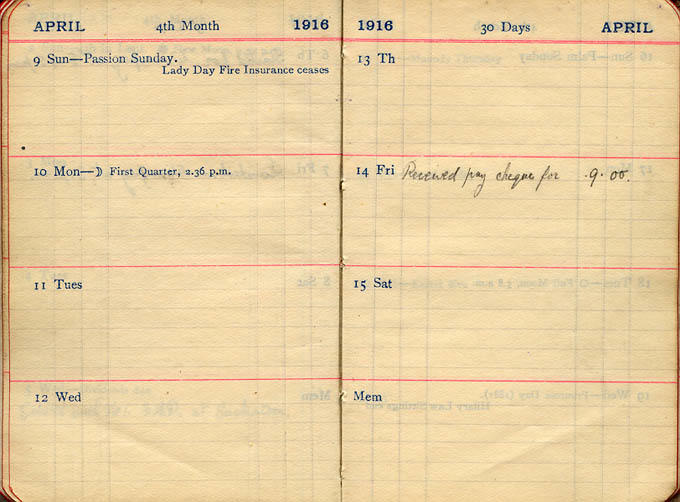 APRIL 4th Month 1916
9 Sun—Passion Sunday.
Lady Day Fire Insurance ceases
10 Mon—☽ First Quarter, 2.36 p.m.
11 Tues
12 Wed
1916 30 Days APRIL
13 Th
14 Fri Received pay cheque for .9.00.
15 Sat
Mem